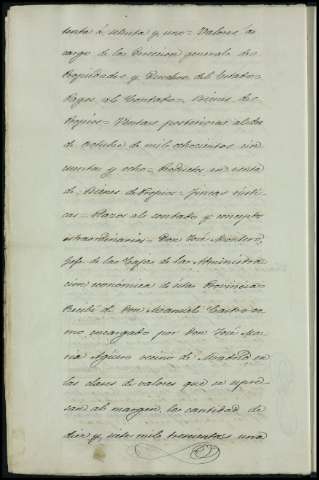 tenta á setenta y uno = Valores á
cargo de la Direccion general de
Propiedades y Derechos del Estado =
Pagos al Contado = Bienes de
Propios = Ventas posteriores al dos
de Octubre de mil ochocientos cin
cuenta y ocho = Productos en venta
de Bienes de Propios = Fincas rústi
cas = Plazos al contado y conceptos
extraordinarios = Don José Montero,
Jefe de la Caja de la Administra
cion económica de esta Provincia =
Recibí de Don Manuel Castro co
mo encargado por Don José Ma
ria Agüero vecino de Madrid, en
las clases de valores que se expre
san al margen, la cantidad de
diez y siete mil trescientas una